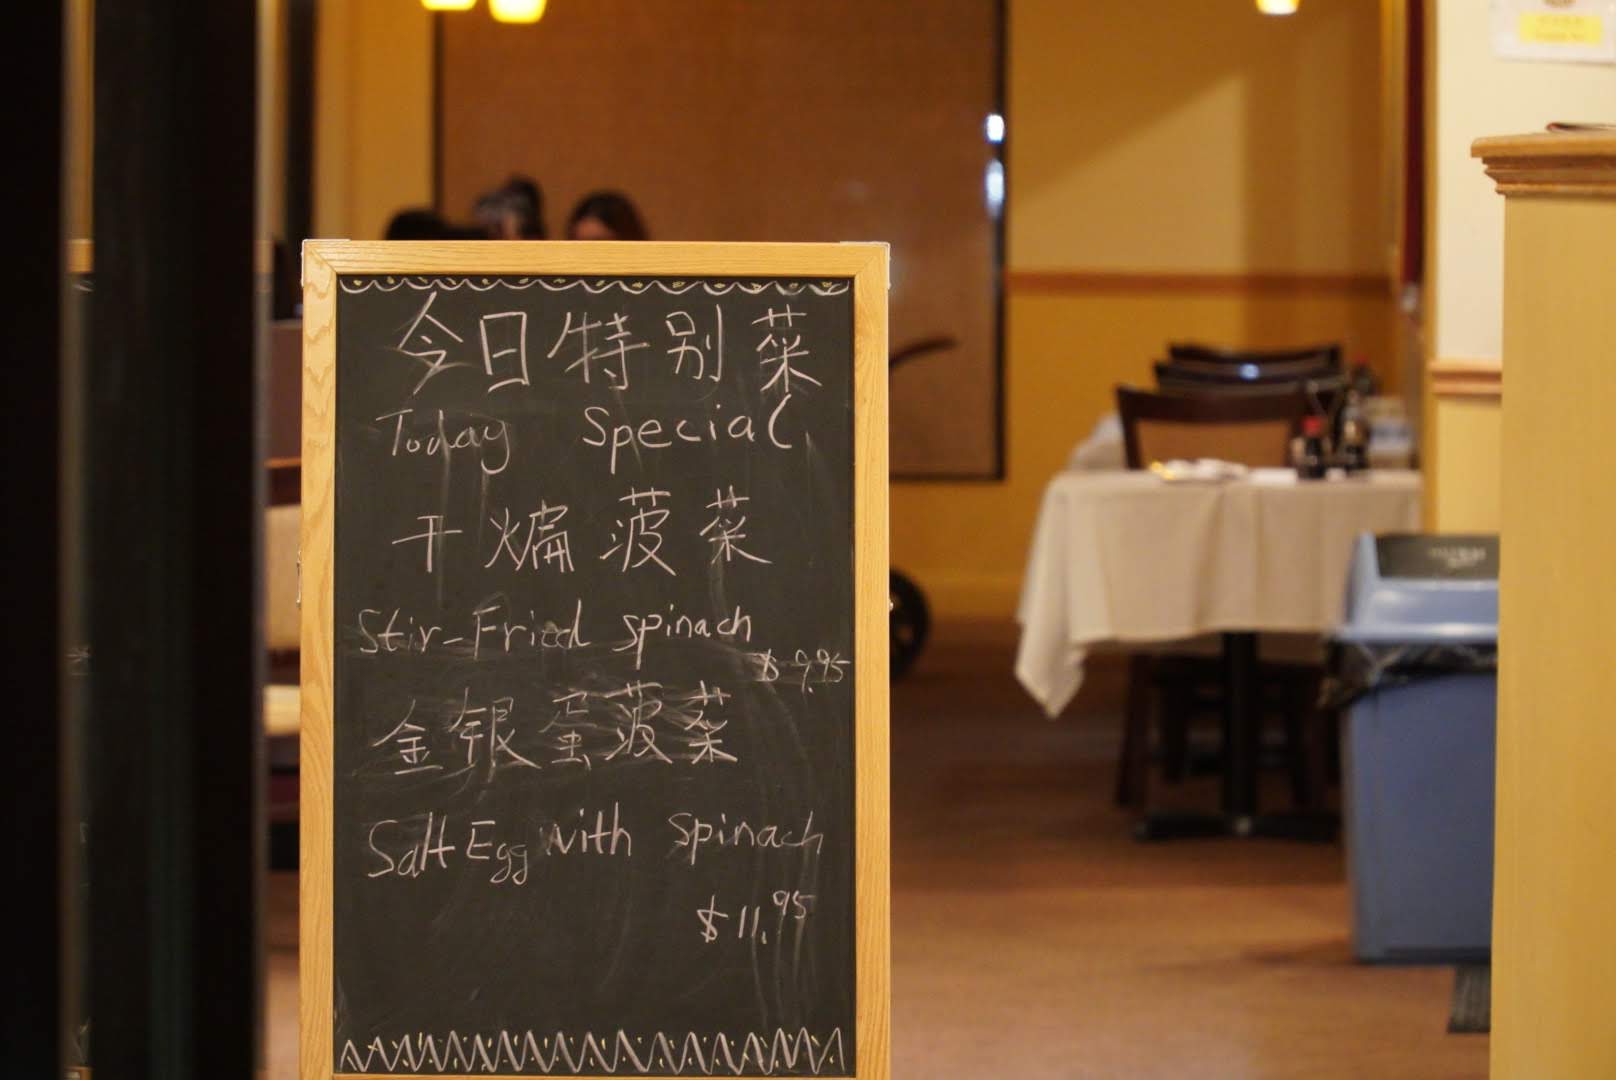 今日特别菜
Today Special
干煸菠菜
Stir-Fried spinach
$ 9.95
金银蛋菠菜
Salt Egg with spinach
$11.95